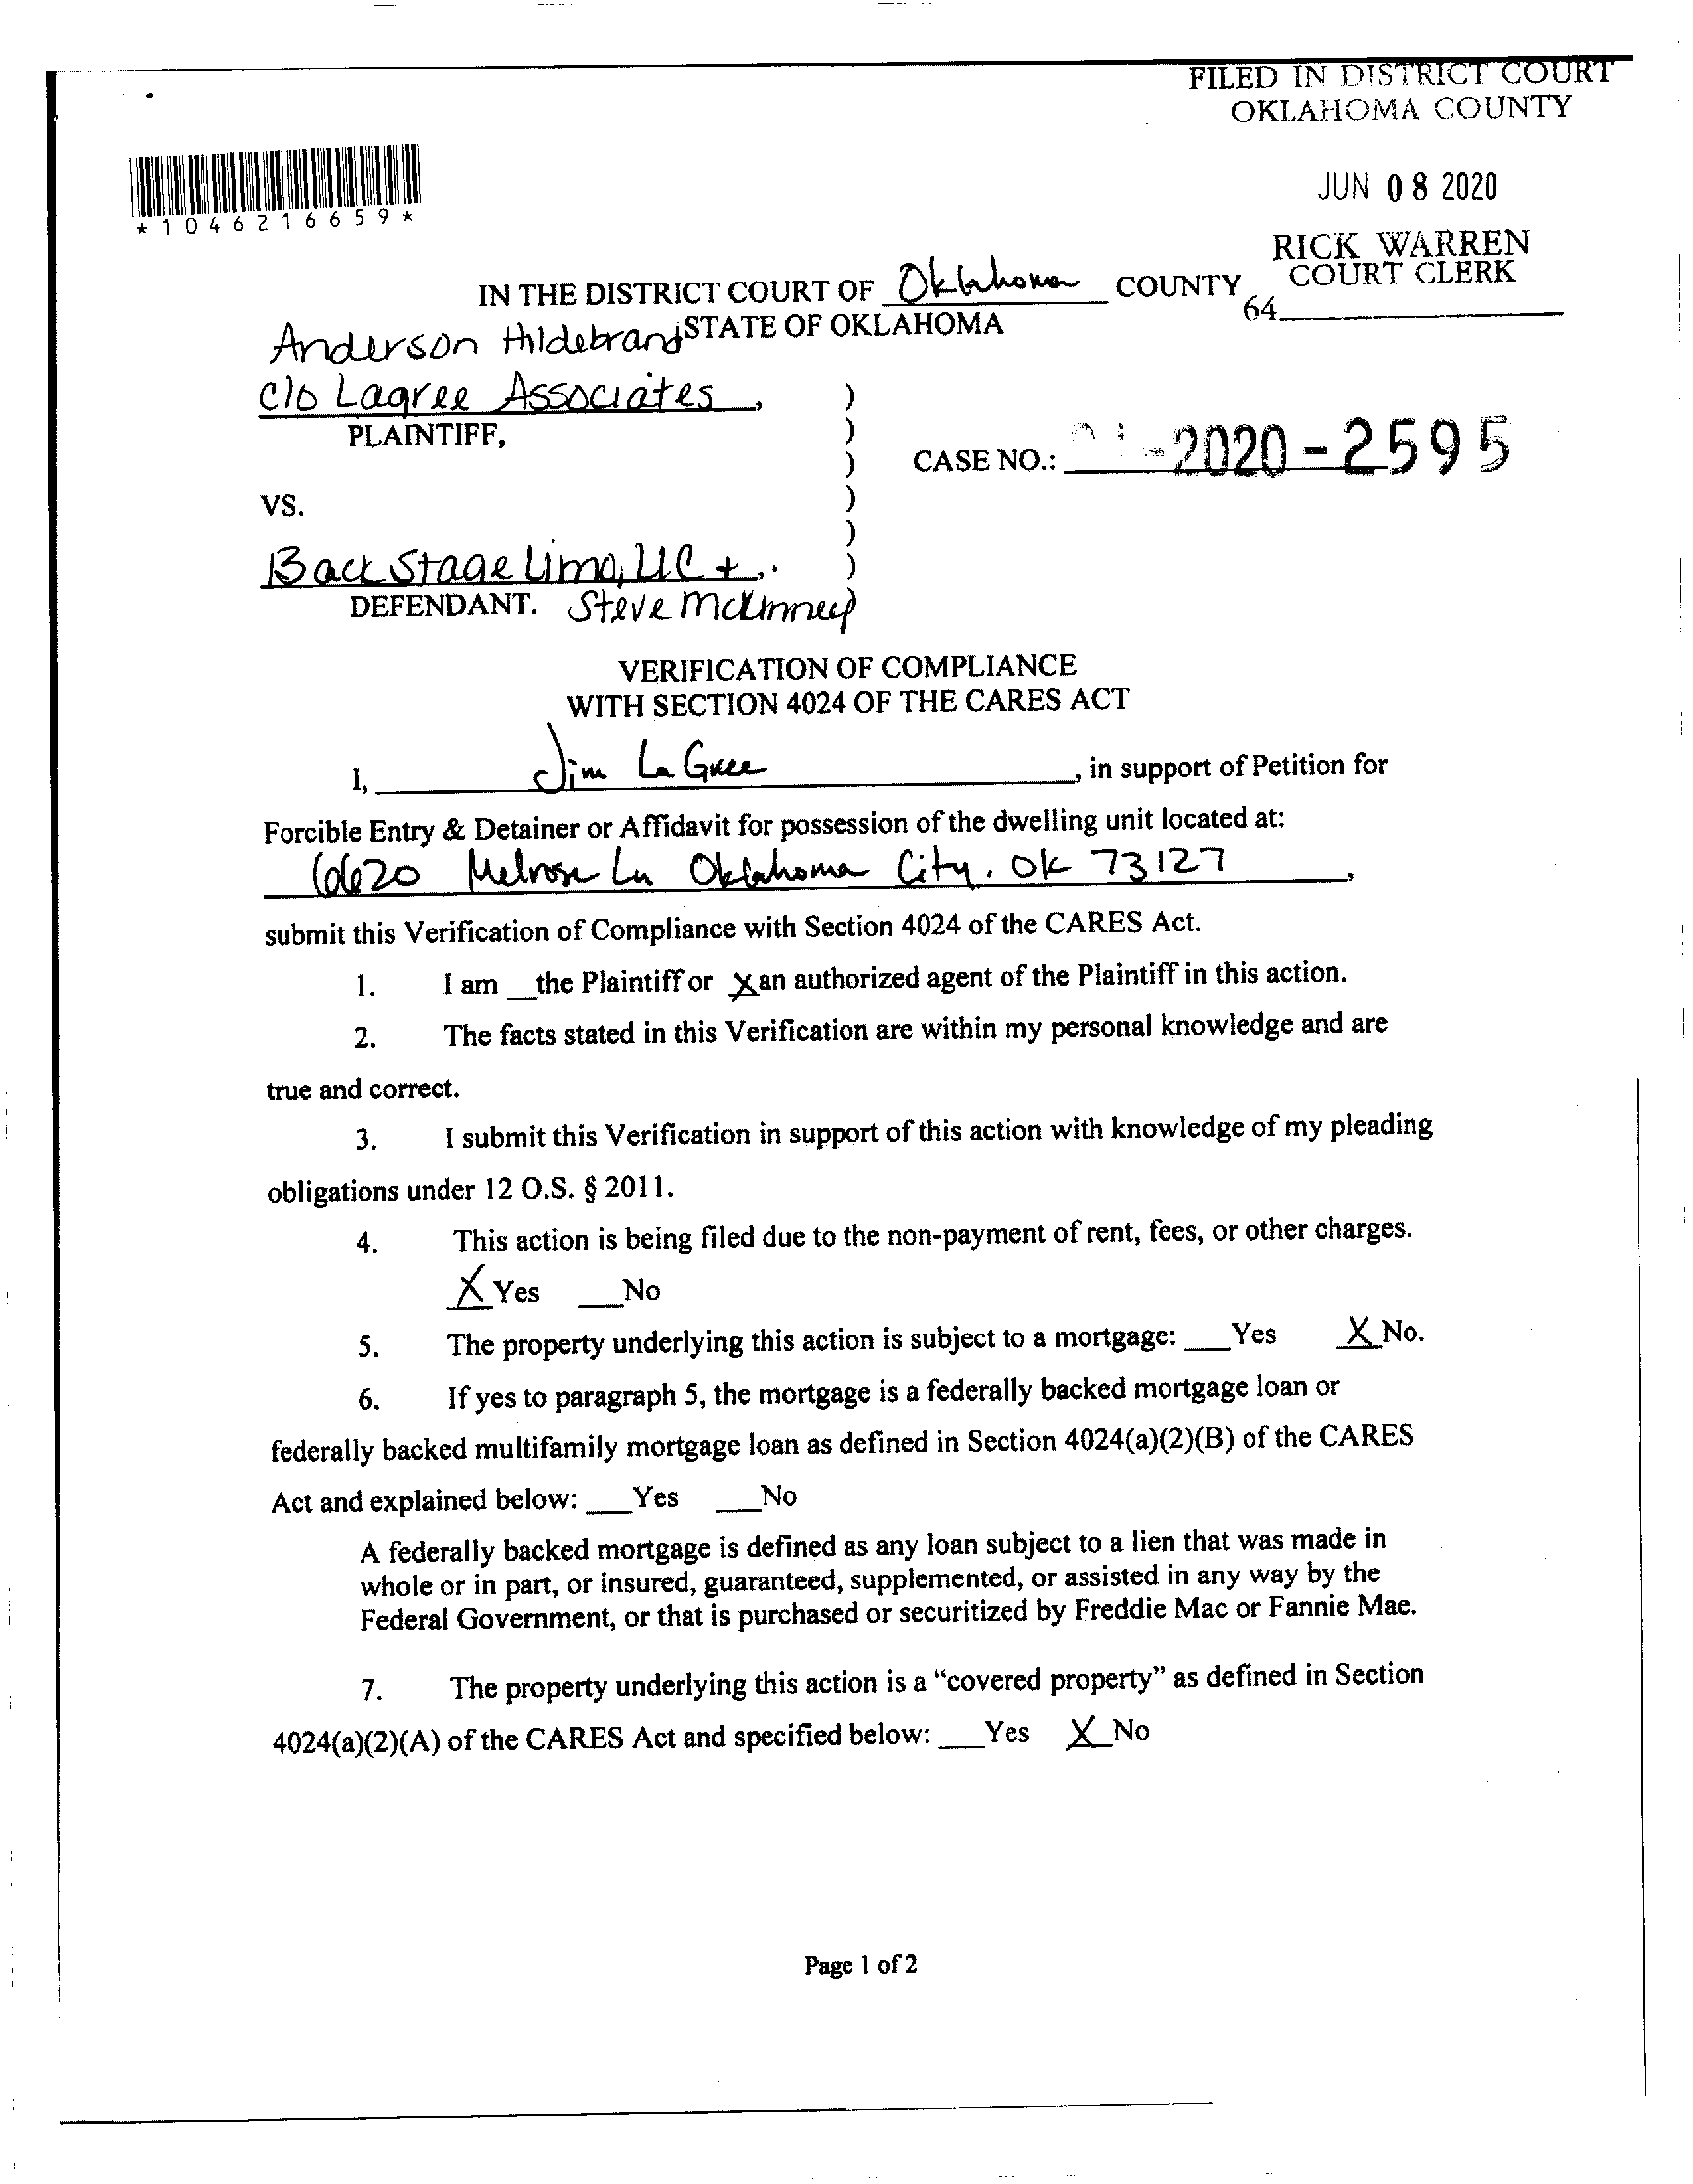 FILED IN DISTRICT COURT
OKLAHOMA COUNTY
JUN 08 2020
RICK WARREN
COURT CLERK
64
*1046216659*
IN THE DISTRICT COURT OF Oklahoma COUNTY
STATE OF OKLAHOMA
Anderson Hildebrand
c/o Lagree Associates,
PLAINTIFF,
CASE NO.: -2020-2595
VS.
Back Stage Limo, LLC +
DEFENDANT. Steve McKinney
)
)
)
)
)
)
VERIFICATION OF COMPLIANCE
WITH SECTION 4024 OF THE CARES ACT
I, Jim LaGree, in support of Petition for
Forcible Entry & Detainer or Affidavit for possession of the dwelling unit located at:
6620 Melrose Ln Oklahoma City, OK 73127,
submit this Verification of Compliance with Section 4024 of the CARES Act.
1. I am __the Plaintiff or X an authorized agent of the Plaintiff in this action.
2. The facts stated in this Verification are within my personal knowledge and are
true and correct.
3. I submit this Verification in support of this action with knowledge of my pleading
obligations under 12 O.S. § 2011.
4. This action is being filed due to the non-payment of rent, fees, or other charges.
X Yes __No
5. The property underlying this action is subject to a mortgage: __Yes X No.
6. If yes to paragraph 5, the mortgage is a federally backed mortgage loan or
federally backed multifamily mortgage loan as defined in Section 4024(a)(2)(B) of the CARES
Act and explained below: __Yes __No
A federally backed mortgage is defined as any loan subject to a lien that was made in
whole or in part, or insured, guaranteed, supplemented, or assisted in any way by the
Federal Government, or that is purchased or securitized by Freddie Mac or Fannie Mae.
7. The property underlying this action is a “covered property” as defined in Section
4024(a)(2)(A) of the CARES Act and specified below: __Yes X No
Page 1 of 2